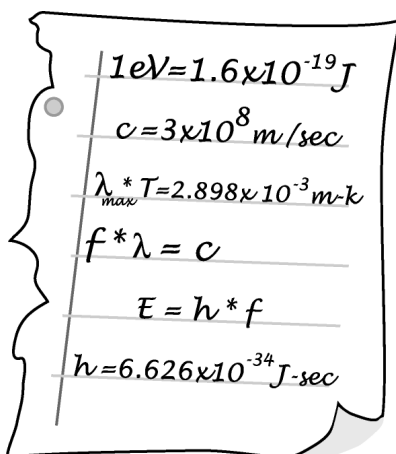 1eV=1.6x10⁻¹⁹J
c=3x10⁸m/sec
λmax*T=2.898x10⁻³m-k
f*λ=c
E=h*f
h=6.626x10⁻³⁴J-sec